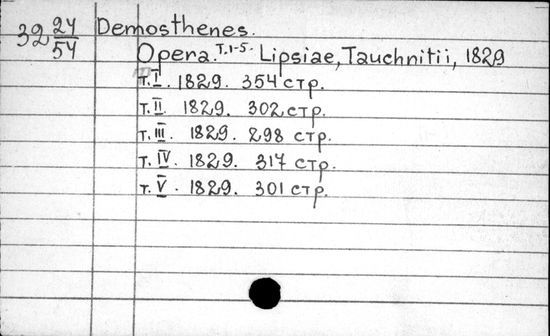 32 24/54 Demosthenes.
Opera. Т.1-5. Lipsiae, Tauchnitii, 1829
т. I. 1829. 354 стр.
т. II. 1829. 302 стр.
т. III. 1829. 298 стр.
т. IV. 1829. 317 стр.
т. V. 1829. 301 стр.